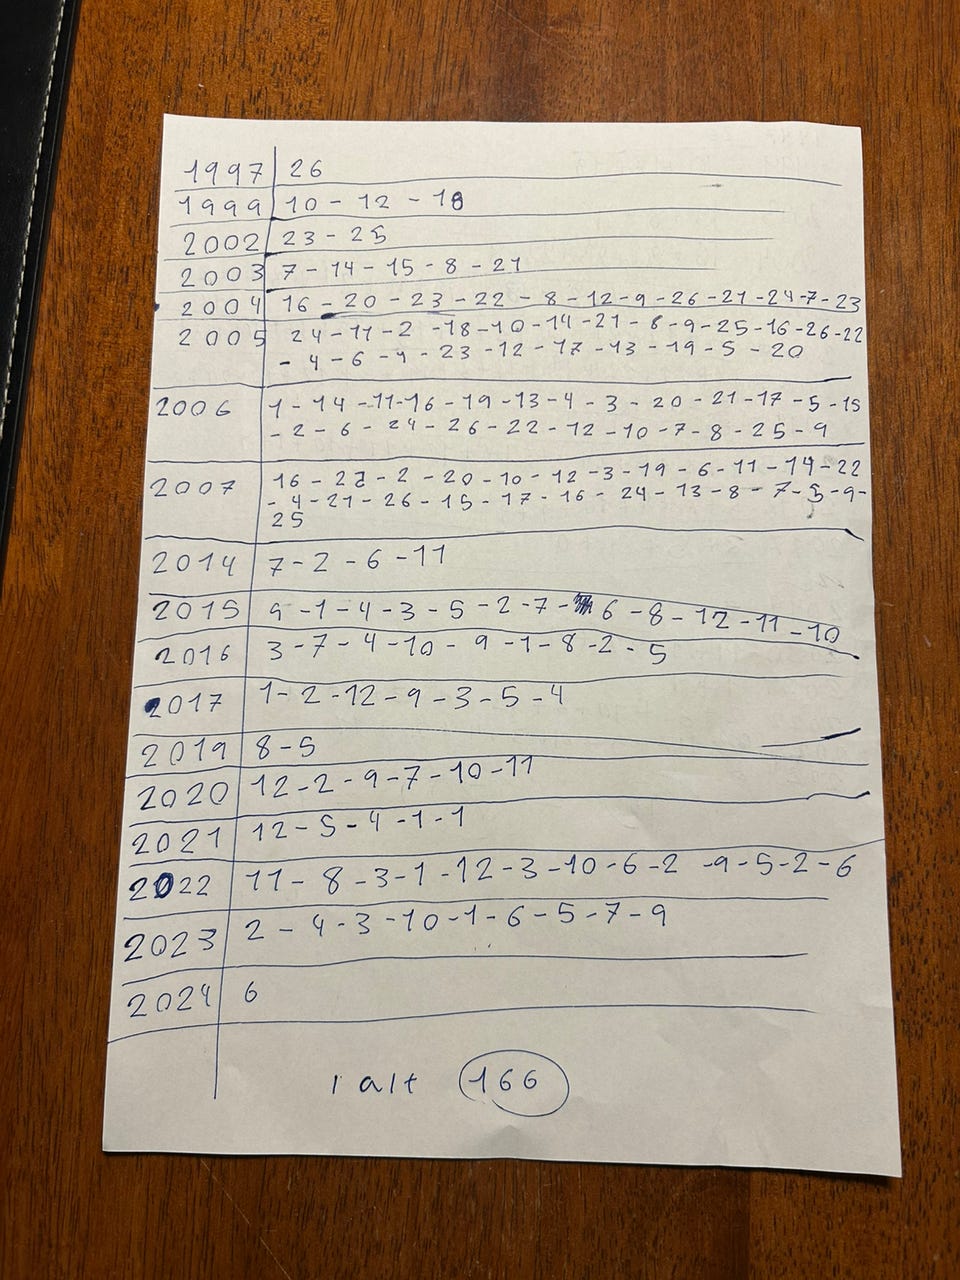 1997 26
1999 10 - 12 - 18
2002 23 - 25
2003 7 - 14 - 15 - 8 - 21
2004 16 - 20 - 23 - 22 - 8 - 12 - 9 - 26 - 21 - 24 - 7 - 23
2005 24 - 11 - 2 - 18 - 10 - 14 - 21 - 8 - 9 - 25 - 16 - 26 - 22
- 4 - 6 - 4 - 23 - 12 - 17 - 13 - 19 - 5 - 20
2006 1 - 14 - 11 - 16 - 19 - 13 - 4 - 3 - 20 - 21 - 17 - 5 - 15
- 2 - 6 - 24 - 26 - 22 - 12 - 10 - 7 - 8 - 25 - 9
2007 16 - - 2 - 20 - 10 - 12 - 3 - 19 - 6 - 11 - 14 - 22
- 4 - 21 - 26 - 15 - 17 - 16 - 24 - 13 - 8 - 7 - 5 - 9 -
25
2014 7 - 2 - 6 - 11
2015 9 - 1 - 4 - 3 - 5 - 2 - 7 - 6 - 8 - 12 - 11 - 10
2016 3 - 7 - 4 - 10 - 9 - 1 - 8 - 2 - 5
2017 1 - 2 - 12 - 9 - 3 - 5 - 4
2019 8 - 5
2020 12 - 2 - 9 - 7 - 10 - 11
2021 12 - 5 - 4 - 1 - 1
2022 11 - 8 - 3 - 1 - 12 - 3 - 10 - 6 - 2 - 9 - 5 - 2 - 6
2023 2 - 4 - 3 - 10 - 1 - 6 - 5 - 7 - 9
2024 6
i alt 166